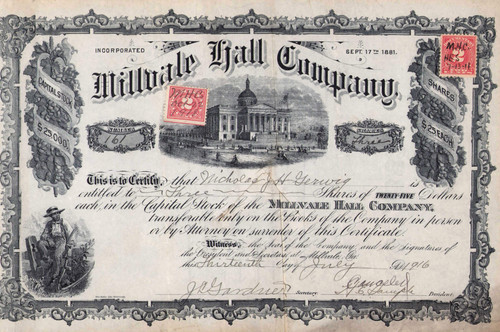 INCORPORATED SEPT. 17TH 1881.
Millvale Hall Company.
CAPITAL STOCK
$25,000.
SHARES
$25 EACH
M.H.C.
2
M.H.C.
2
NUMBER
161
SHARES
Three
This is to Certify, that Nicholas J. H. Gerwig is
entitled to Three Shares of TWENTY-FIVE Dollars
each, in the Capital Stock of the MILLVALE HALL COMPANY,
transferable only on the Books of the Company in person
or by Attorney on surrender of this Certificate.
Witness, the Seal of the Company, and the Signatures of the
President and Secretary at Millvale, Pa.
this Thirteenth Day of July 1916
J C Gardner Secretary President.